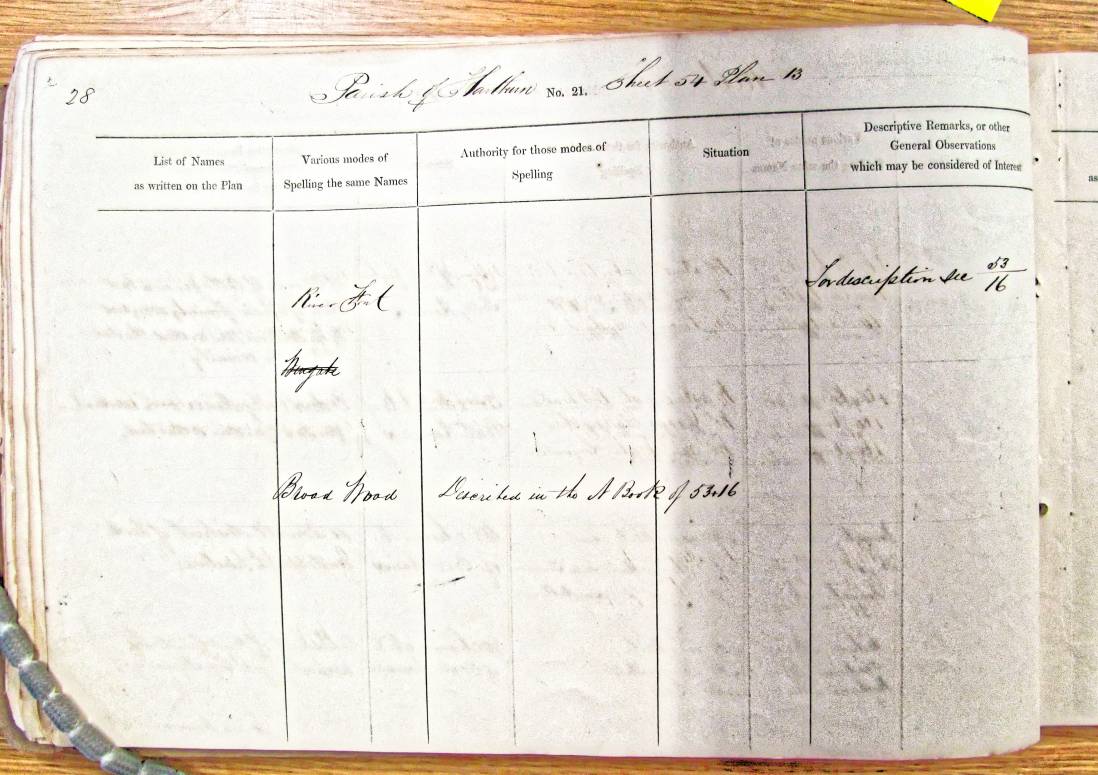 28
Parish of Hartburn No. 21. Sheet 54 Plan 13
List of Names
as written on the Plan
Various modes of
Spelling the same Names
Authority for those modes of
Spelling
Situation
Descriptive Remarks, or other
General Observations
which may be considered of Interest
River Font
For description see 53/16
Broad Wood Described in the N Book of 53.16
as